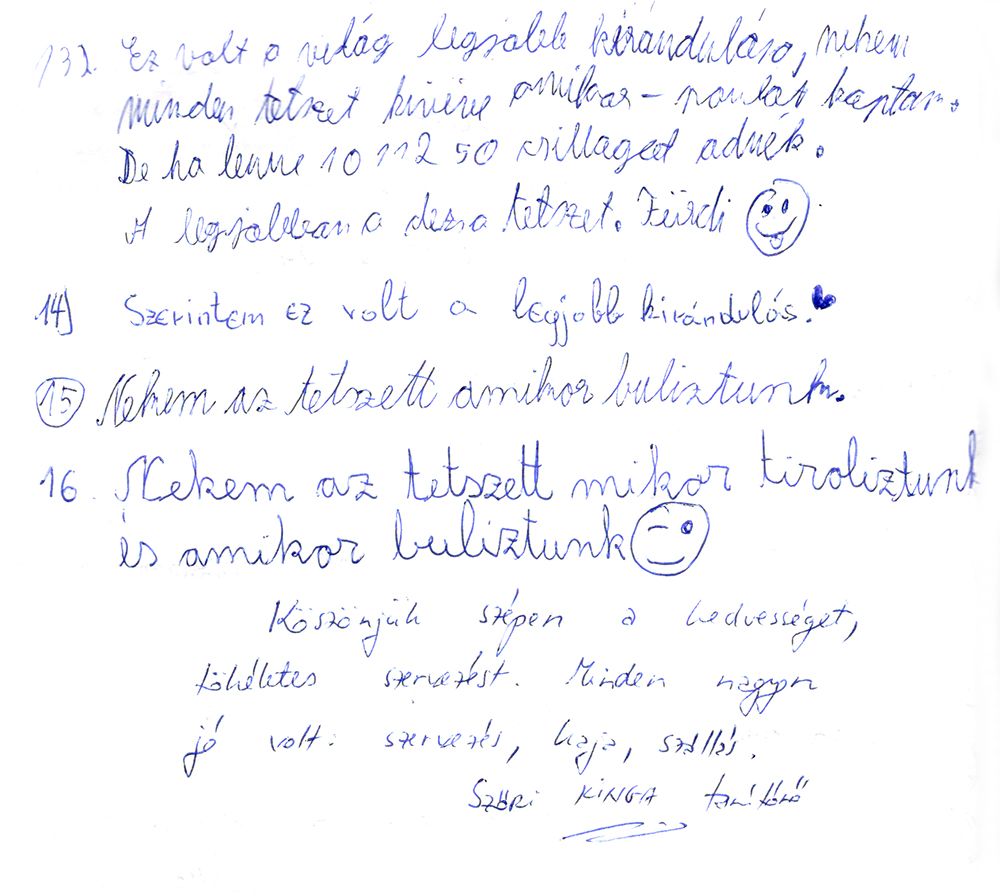 132. Ez volt a világ legjobb kirándulása, nekem
minden tetszet kivéve amikor - pontot kaptam.
De ha lenne 10 112 50 csillagot adnék.
A legjobban a dézsa tetszet. Fürdi
14) Szerintem ez volt a legjobb kirándulás.
15 Nekem az tetszett amikor buliztunk.
16. Nekem az tetszett mikor tiroliztunk
és amikor buliztunk
Köszönjük szépen a kedvességet,
tökéletes szervezést. Minden nagyon
jó volt: szervezés, kaja, szállás.
Széri KINGA tanítónő